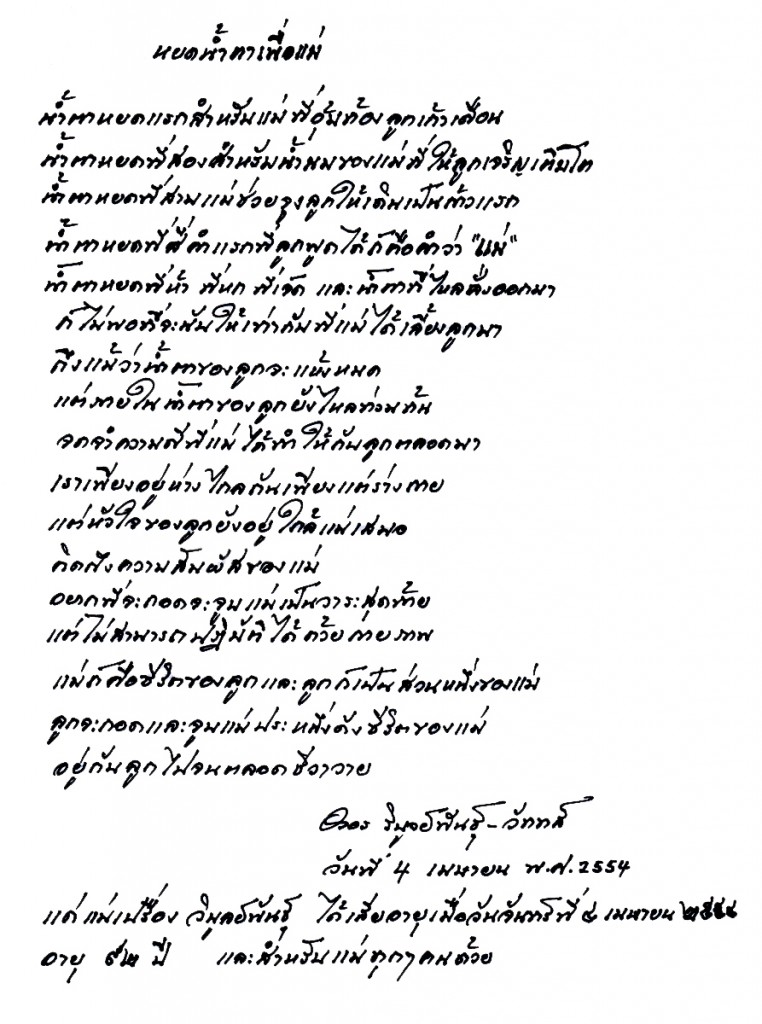 หยดน้ำตาเพื่อแม่
น้ำตาหยดแรกสำหรับแม่ที่อุ้มท้องลูกเก้าเดือน
น้ำตาหยดที่สองสำหรับน้ำนมของแม่ที่ให้ลูกเจริญเติบโต
น้ำตาหยดที่สามแม่ช่วยจูงลูกให้เดินเป็นก้าวแรก
น้ำตาหยดที่สี่คำแรกที่ลูกพูดได้ก็คือคำว่า "แม่"
น้ำตาหยดที่ห้า ที่หก ที่เจ็ด และน้ำตาที่ไหลหลั่งออกมา
ก็ไม่พอที่จะนับให้เท่ากับที่แม่ได้เลี้ยงลูกมา
ถึงแม้ว่าน้ำตาของลูกจะแห้งหมด
แต่ภายในน้ำตาของลูกยังไหลท่วมท้น
จดจำความดีที่แม่ได้ทำให้กับลูกตลอดมา
เราเพียงอยู่ห่างไกลกันเพียงแต่ร่างกาย
แต่หัวใจของลูกยังอยู่ใกล้แม่เสมอ
คิดถึงความสัมผัสของแม่
อยากที่จะกอดจะจูบแม่เป็นวาระสุดท้าย
แต่ไม่สามารถปฏิบัติได้ด้วยกายภาพ
แม่ก็คือชีวิตของลูกและลูกก็เป็นส่วนหนึ่งของแม่
ลูกจะกอดและจูบแม่ประหนึ่งดังชีวิตของแม่
อยู่กับลูกไปจนตลอดชีวาวาย
วิบูลย์พันธุ์ -
วันที่ 4 เมษายน พ.ศ. 2554
แด่แม่เปรื่อง วิบูลย์พันธุ์ ได้เสียอายุเมื่อวันจันทร์ที่ ๔ เมษายน ๒๕๕๔
อายุ ๙๒ ปี และสำหรับแม่ทุกๆคนด้วย